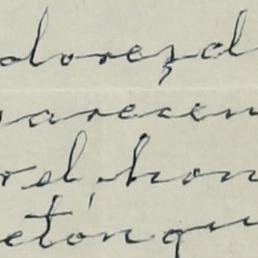 dorezd
parecen
rel, hon
etón qu